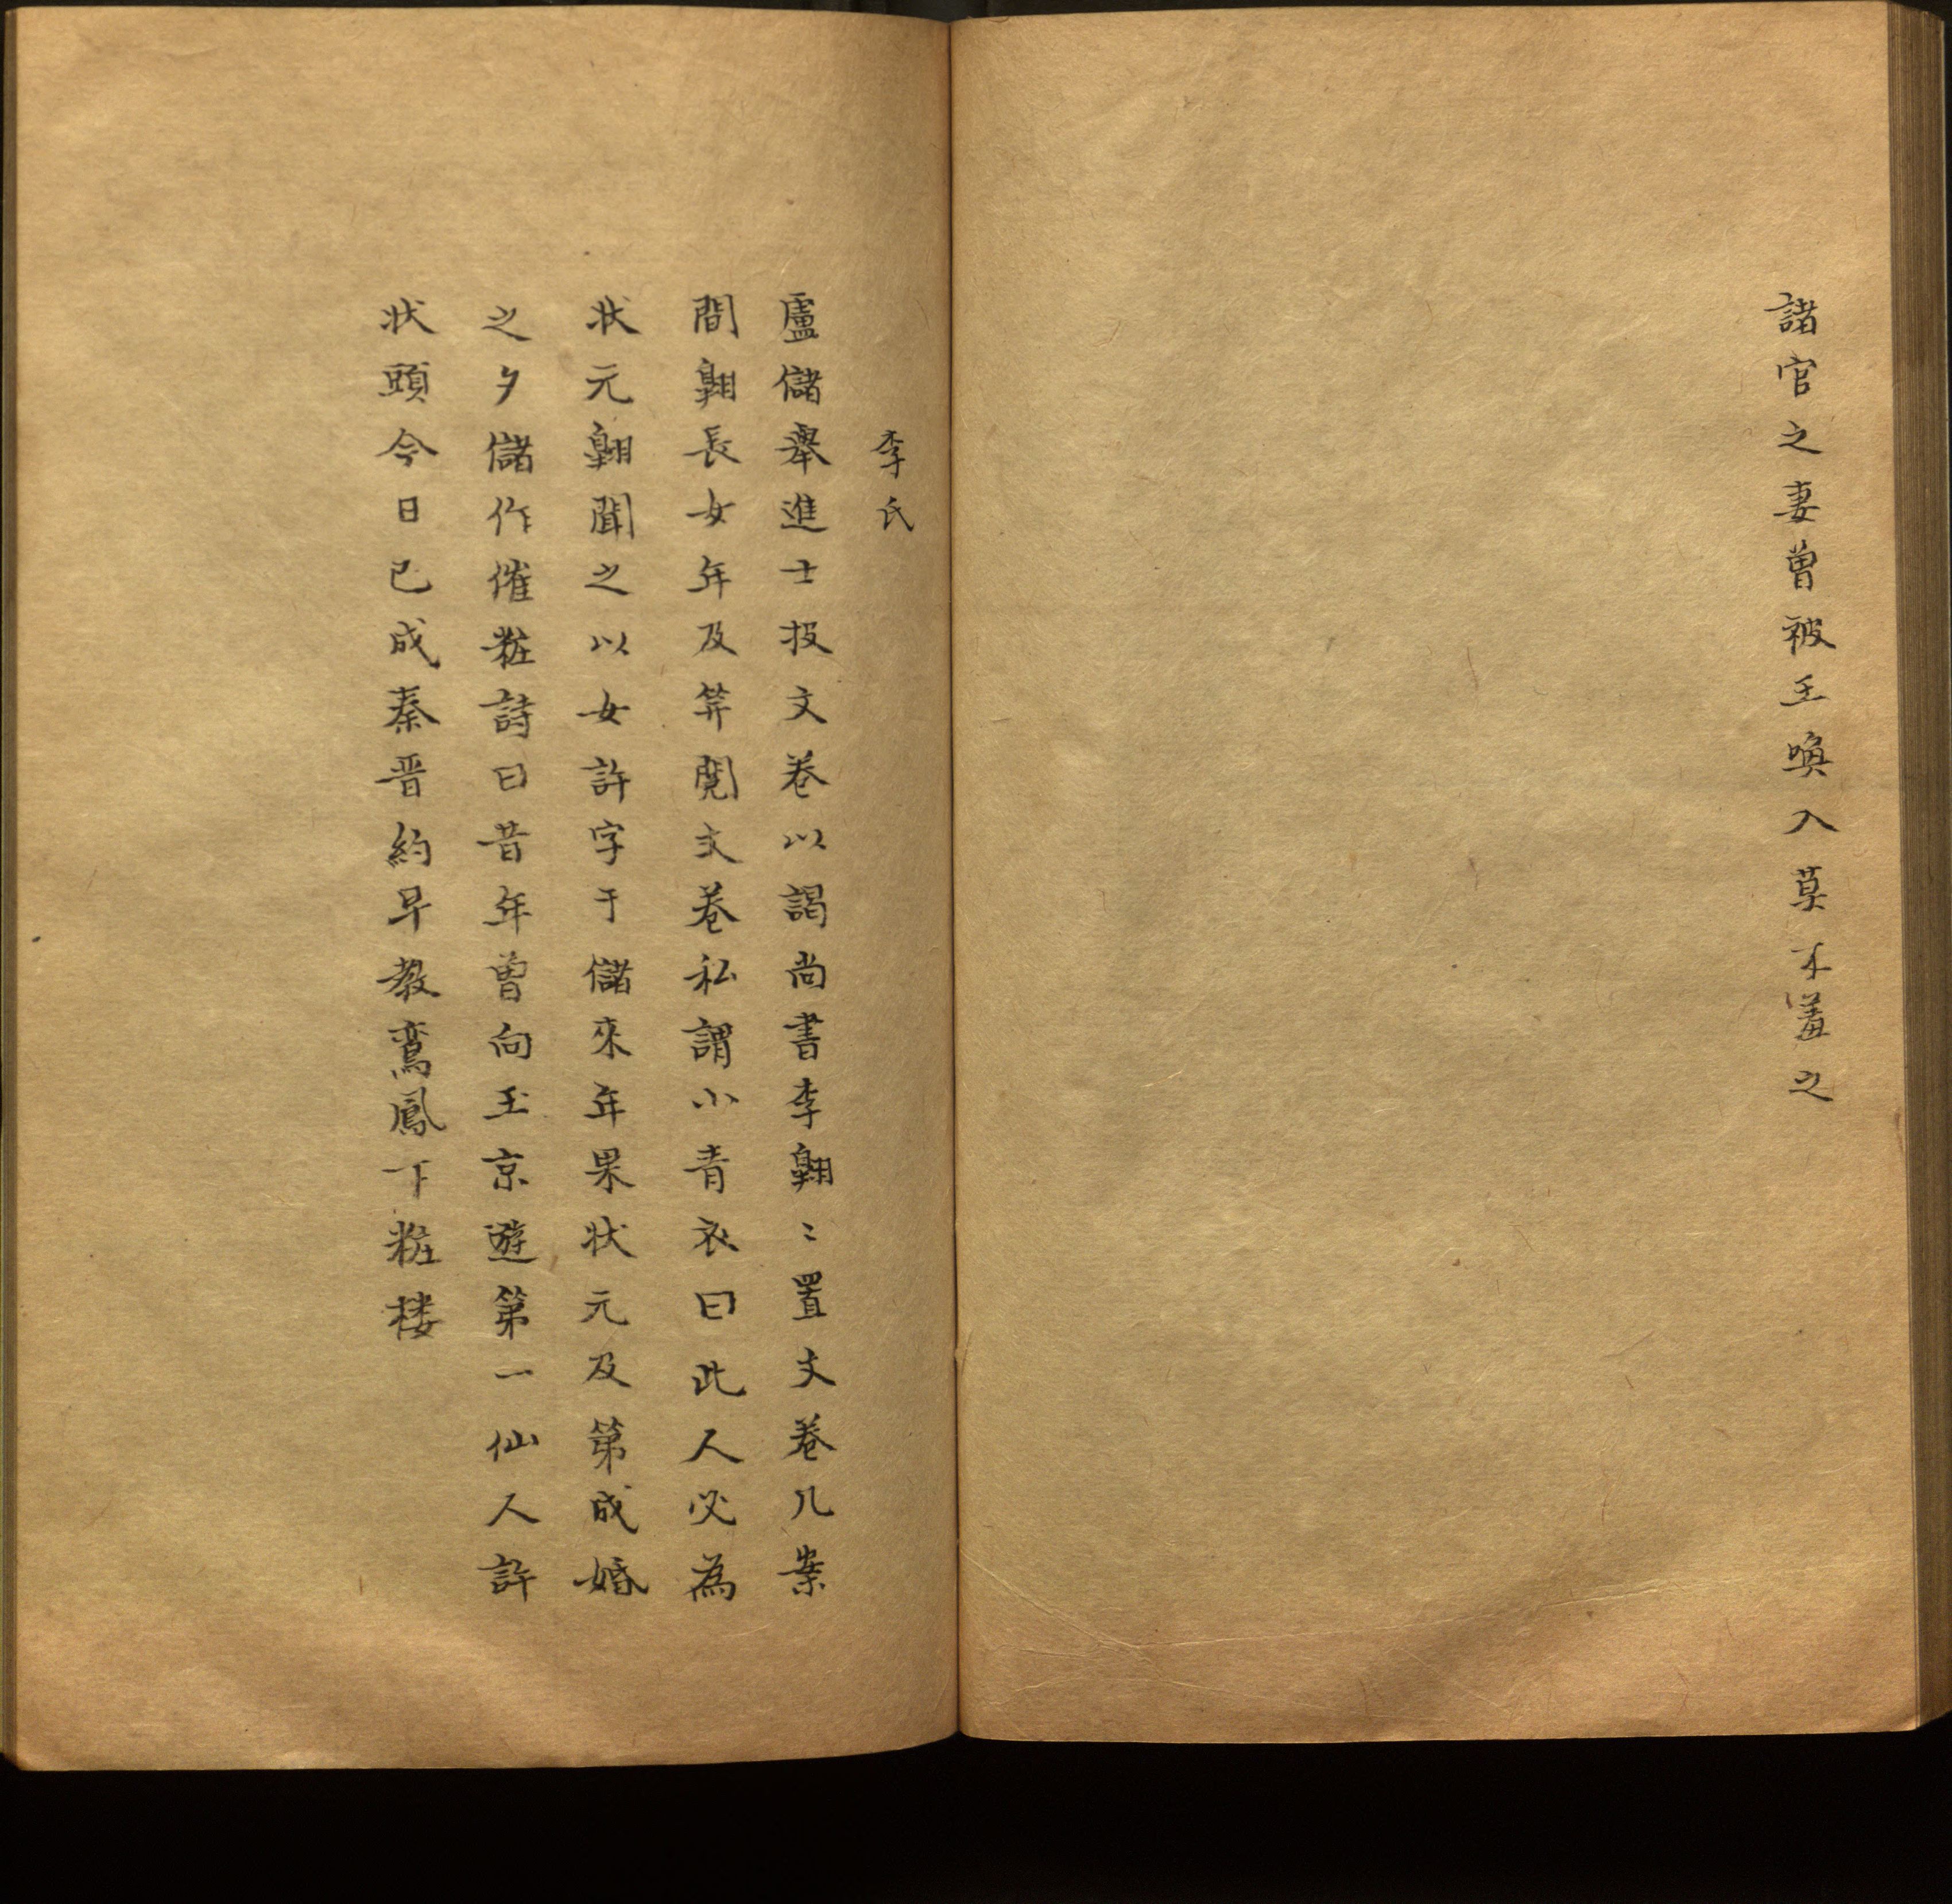 諸官之妻曾被王喚入莫不羞之
李氏
盧儲舉進士投文卷以謁尚書李翱〻置文卷几案
間翱長女年及笄閱文卷私謂小青衣曰此人必為
狀元翱聞之以女許字于儲來年果狀元及第成婚
之夕儲作催粧詩曰昔年曾向玉京遊第一仙人許
狀頭今日已成秦晋約早教鸞鳳下粧楼